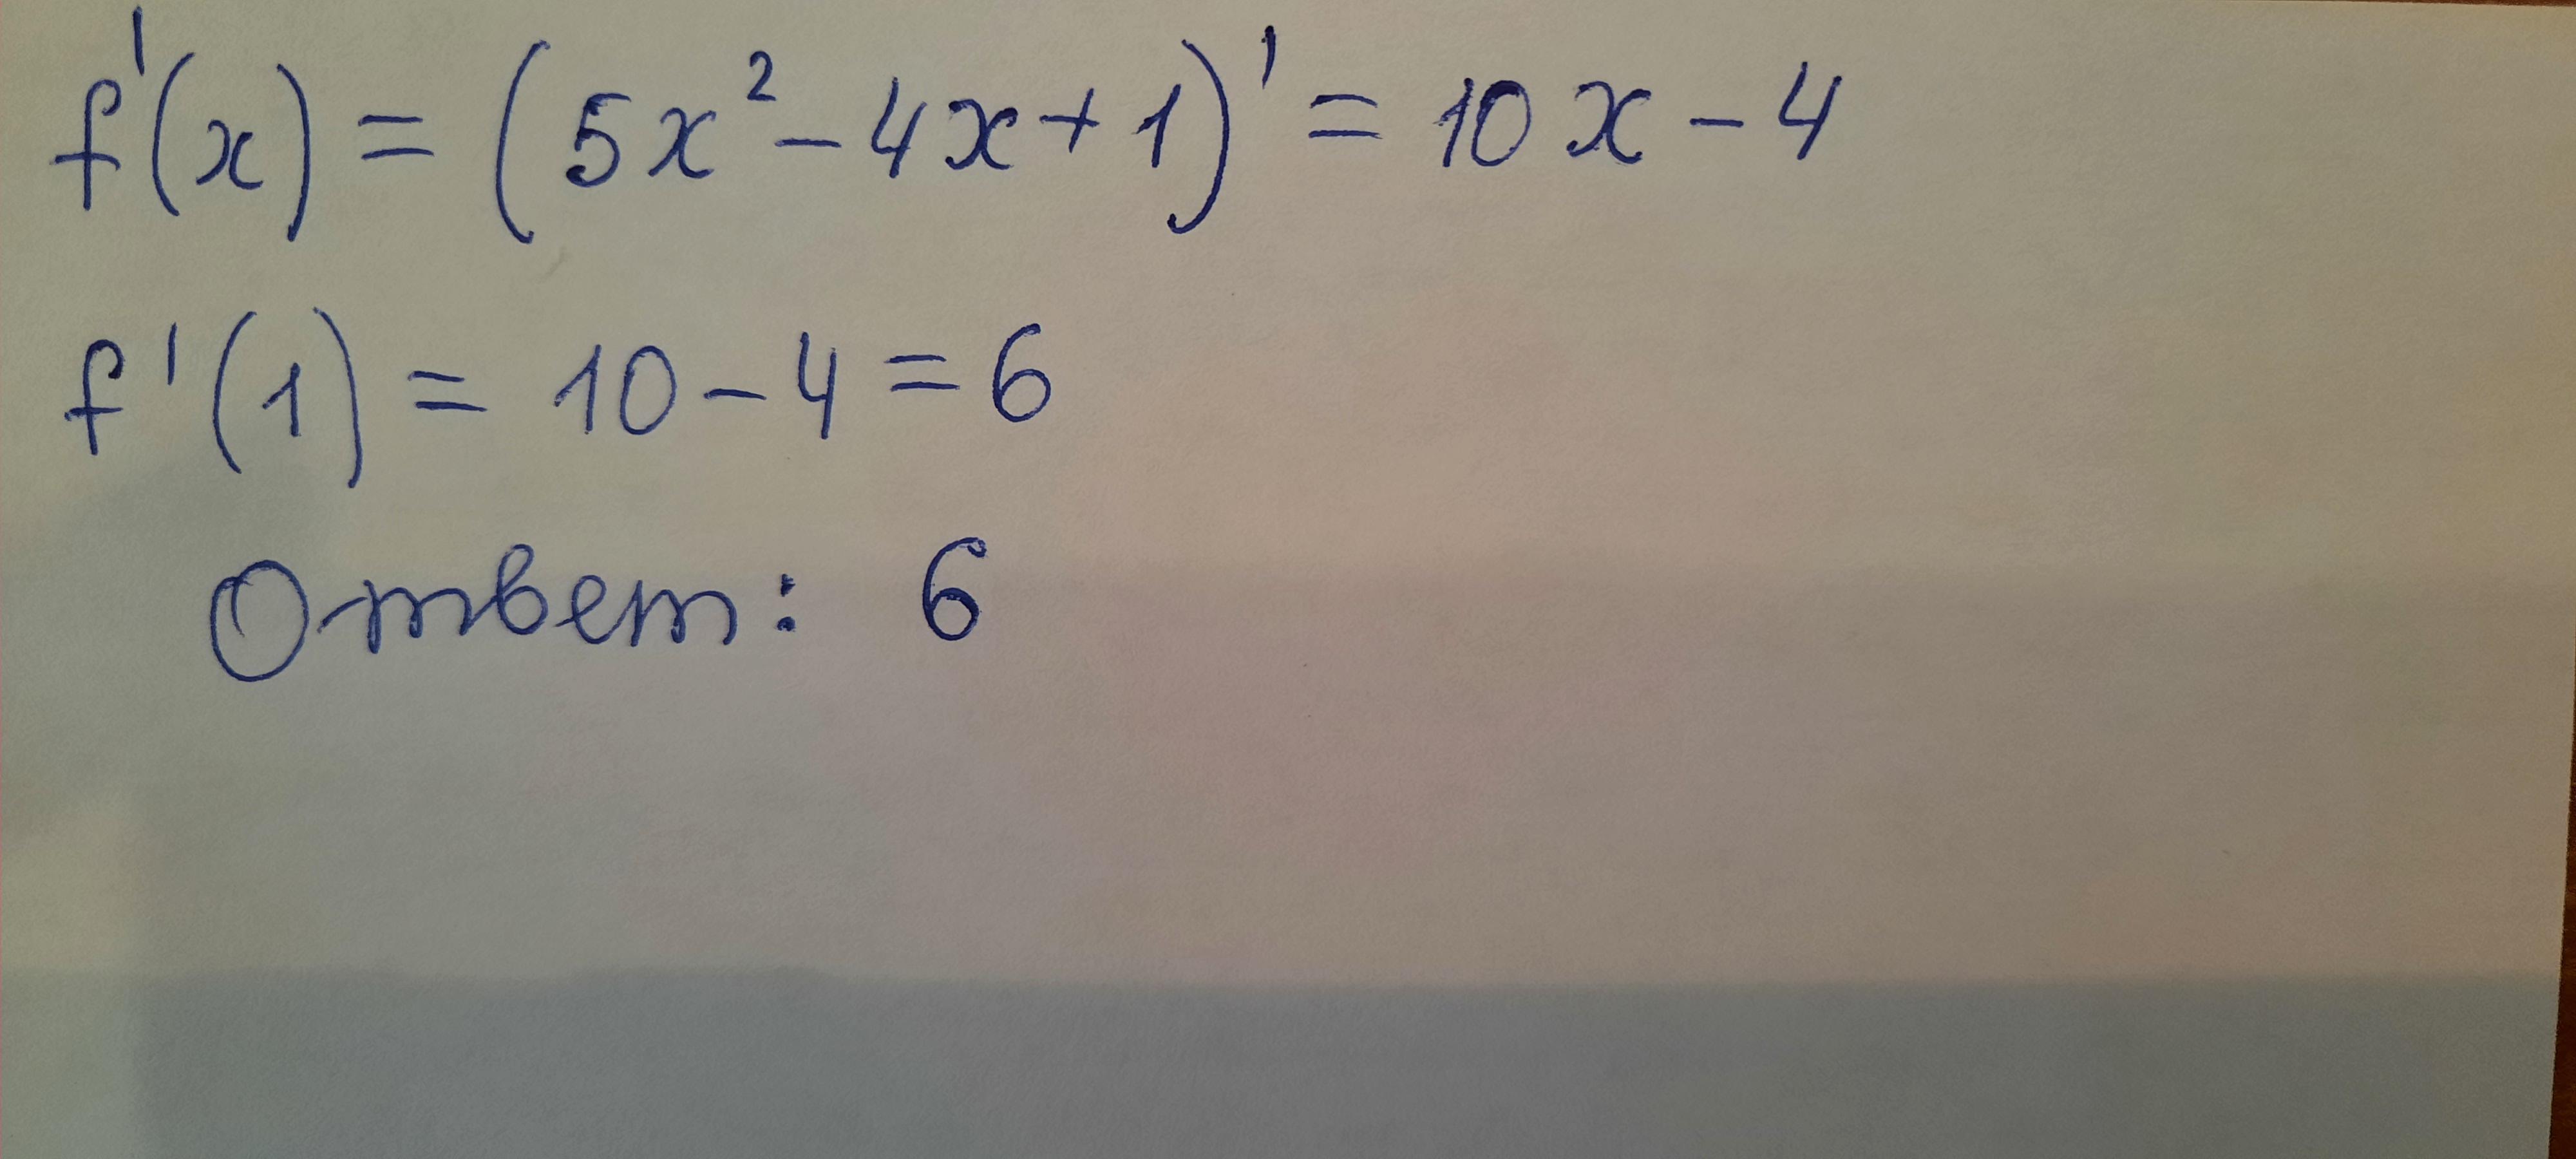 f'(x) = (5x² - 4x + 1)' = 10x - 4
f'(1) = 10 - 4 = 6
Ответ: 6